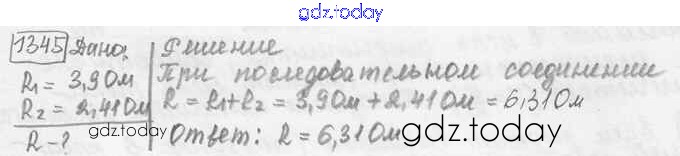 gdz.today
1345 Дано: Решение
R₁ = 3,9 Ом При последовательном соединении
R₂ = 2,41 Ом R = R₁+R₂ = 3,9 Ом + 2,41 Ом = 6,31 Ом
R - ? Ответ: R = 6,31 Ом
gdz.today
gdz.today
gdz.today